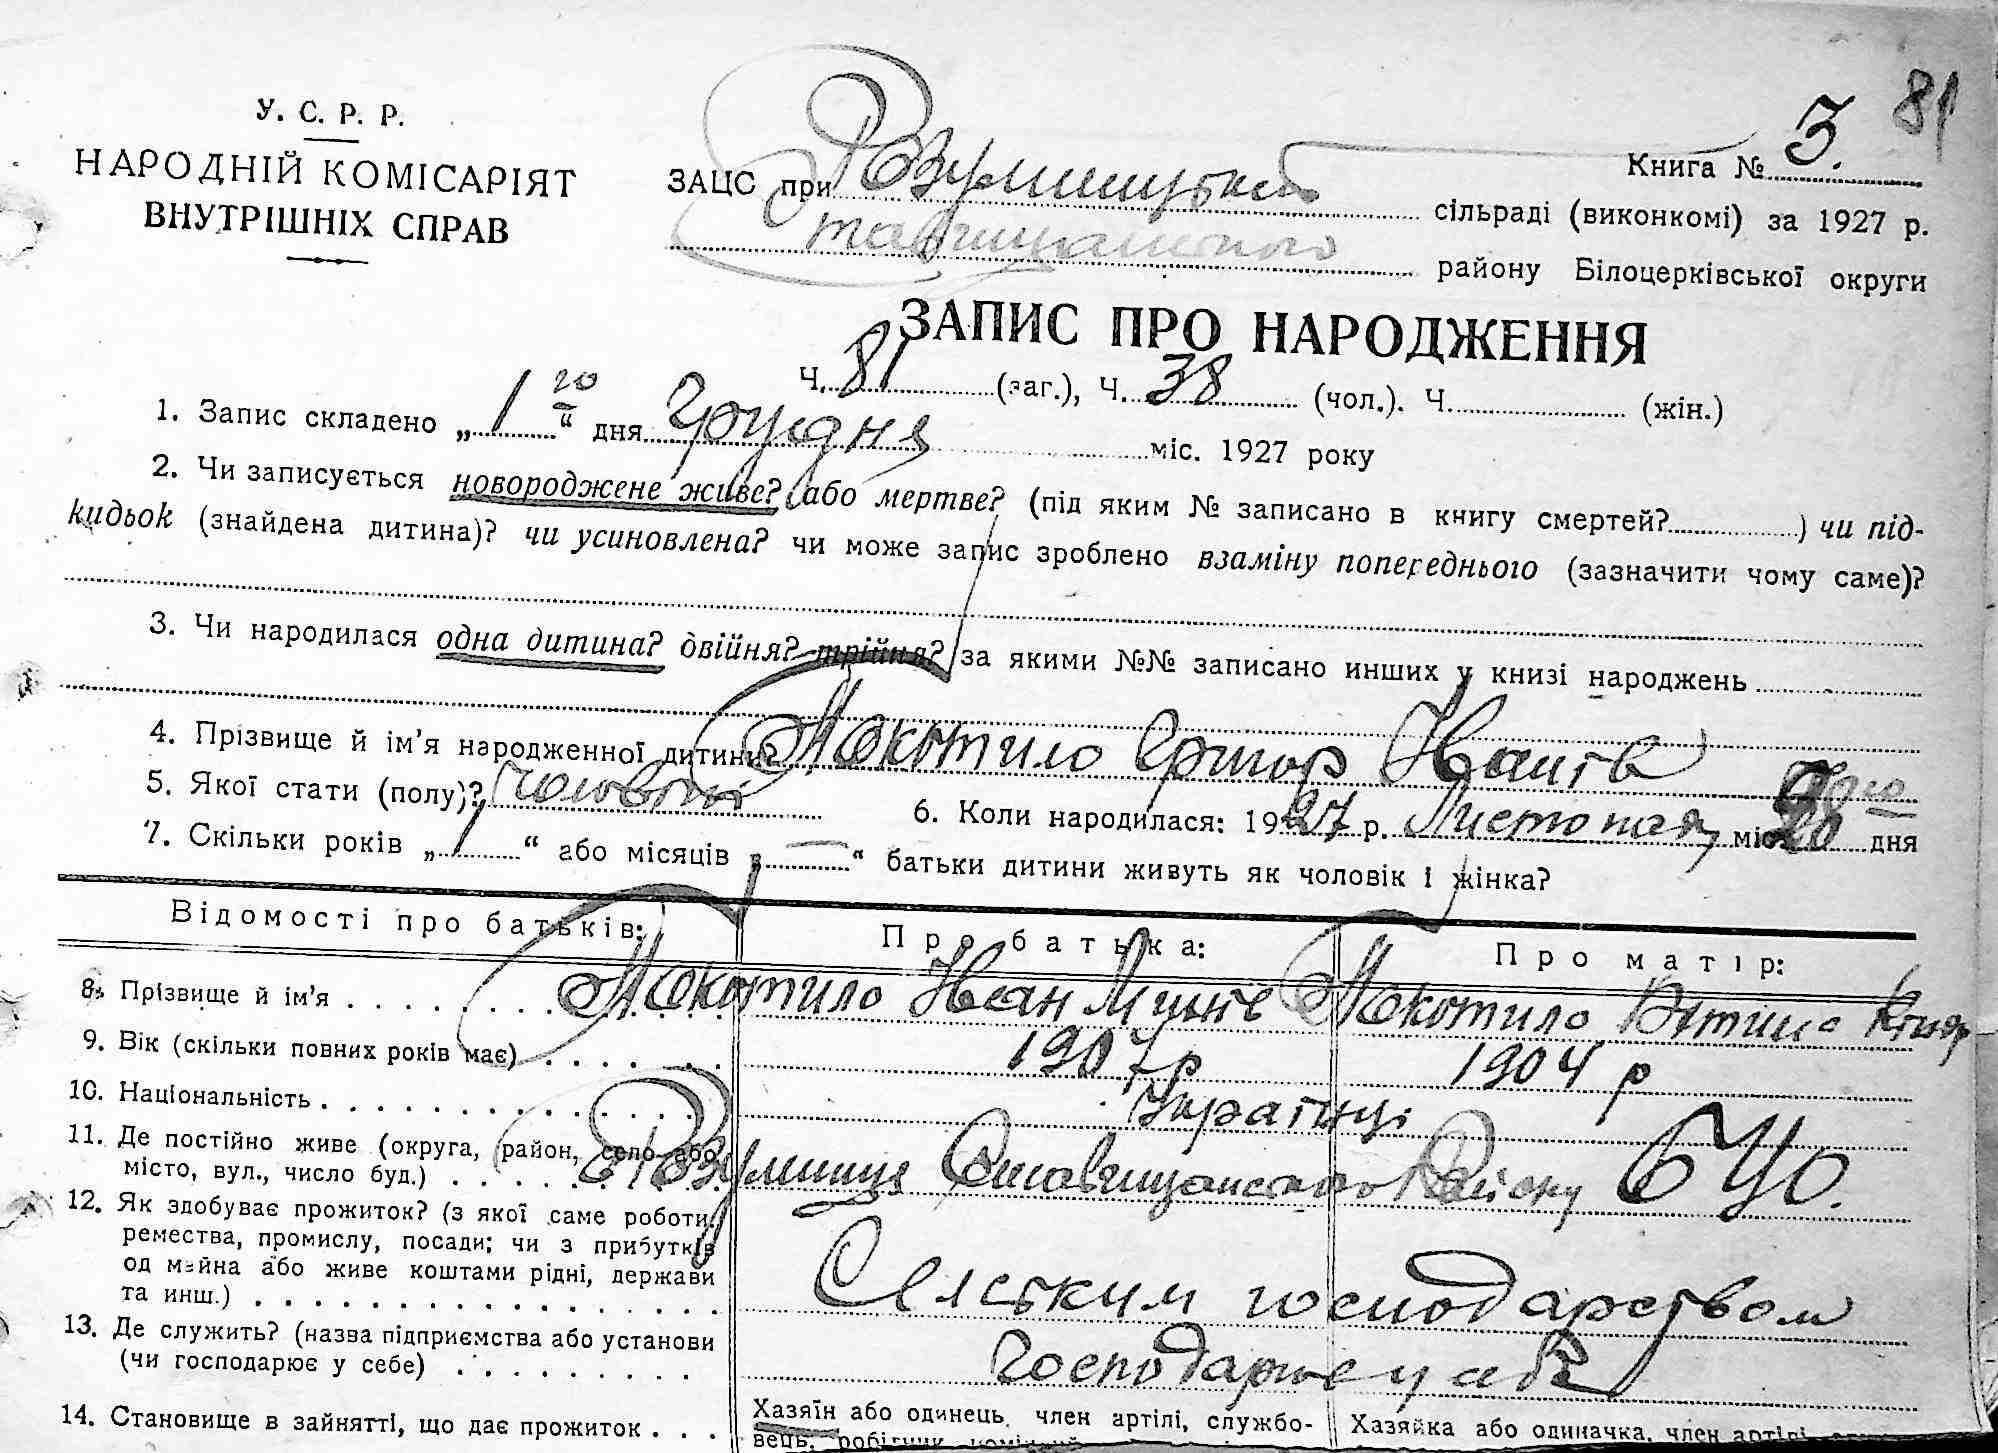 81
У. С. Р. Р.
НАРОДНІЙ КОМІСАРІЯТ
ВНУТРІШНІХ СПРАВ
Книга № 3.
ЗАЦС при Розумницькій сільраді (виконкомі) за 1927 р.
Ставищанського району Білоцерківської округи
ЗАПИС ПРО НАРОДЖЕННЯ
Ч. 81 (заг.), Ч. 38 (чол.). Ч. (жін.)
1. Запис складено „1го“ дня Грудня міс. 1927 року
2. Чи записується новороджене живе? або мертве? (під яким № записано в книгу смертей?) чи під-
кидьок (знайдена дитина)? чи усиновлена? чи може запис зроблено взаміну попереднього (зазначити чому саме)?
3. Чи народилася одна дитина? двійня? трійня? за якими №№ записано инших у книзі народжень
4. Прізвище й ім’я народженної дитини? Мокотило Григор Іванів
5. Якої стати (полу)? чоловічої 6. Коли народилася: 1927 р. Листопад міс. 20 дня
7. Скільки років „1“ або місяців „—“ батьки дитини живуть як чоловік і жінка?
Відомості про батьків: Про батька: Про матір:
8. Прізвище й ім’я Мокотило Іван Мокотило
9. Вік (скільки повних років має) 1907 р 1904 р
10. Національність Українці
11. Де постійно живе (округа, район, село або
місто, вул., число буд.) с. Розумниця Ставищанського Району БЦО.
12. Як здобуває прожиток? (з якої саме роботи,
ремества, промислу, посади; чи з прибутків
од майна або живе коштами рідні, держави
та инш.) Сільським господарством
13. Де служить? (назва підприємства або установи
(чи господарює у себе) Господарює у себе
14. Становище в зайнятті, що дає прожиток Хазяїн або одинець, член артілі, службо- Хазяйка або одиначка, член артілі
вець, робітник